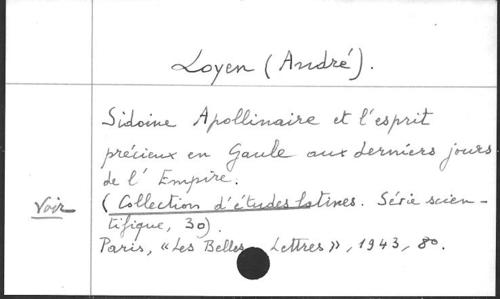 Loyen (André).
Sidoine Apollinaire et l'esprit
précieux en Gaule aux derniers jours
de l'Empire.
Voir (Collection d'études latines. Série scien-
tifique, 30).
Paris, «Les Belles Lettres», 1943, 8o.